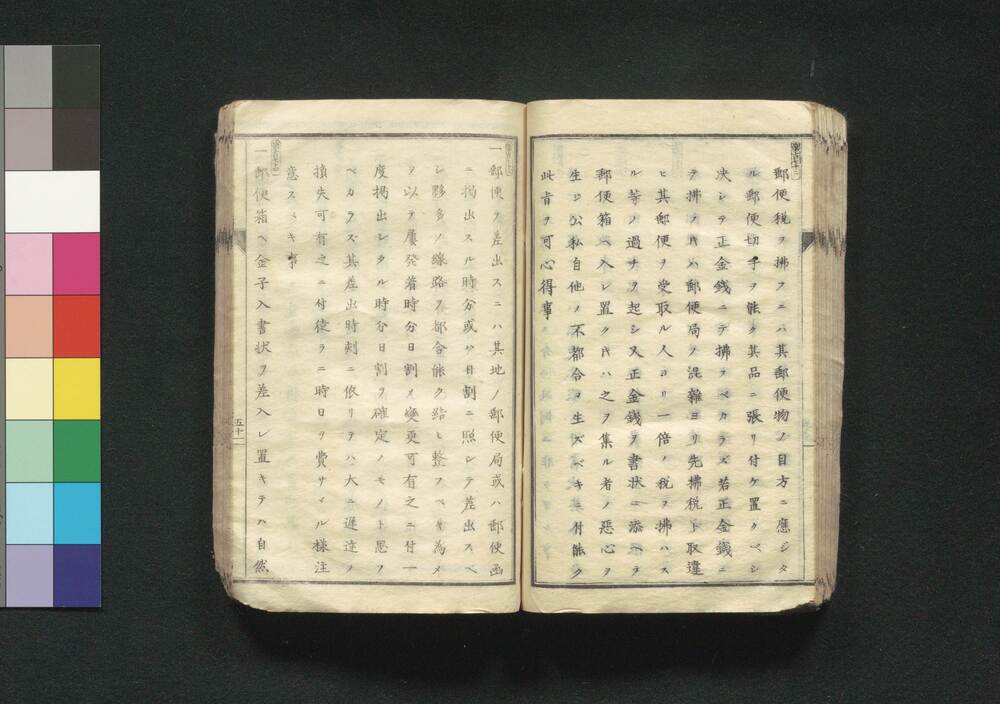 郵便税ヲ拂フニハ其郵便物ノ目方ニ應ジタ
ル郵便切手ヲ能ク其品ニ張リ付ケ置クベシ
决シテ正金錢ニテ拂フベカラズ若正金錢ニ
テ拂フ𪜈ハ郵便局ノ混雜ヨリ先拂税ト取違
ヒ其郵便ヲ受取ル人ヨリ一倍ノ税ヲ拂ハス
ル等ノ過チヲ起シ又正金錢ヲ書状ニ添ヘテ
郵便箱ヘ入レ置ク𪜈ハ之ヲ集ル者ノ惡心ヲ
生ジ公私自他ノ不都合ヲ生ズベキニ付能ク
此旨ヲ可心得事
一郵便ヲ差出スニハ其地ノ郵便局或ハ郵便函
ニ掲出スル時分或ハ日割ニ照シテ差出スベ
シ夥多ノ線路ヲ都合能ク結ヒ整フベキ為メ
ヲ以テ屢発着時分日割メ變更可有之ニ付一
度掲出シタル時分日割ヲ確定ノモノト思フ
ベカラズ其差出時刻ニ依リテハ大ニ遅達ノ
損失可有之ニ付徒ラニ時日ヲ費サヾル様注
意スベキ事
一郵便箱ヘ金子入書状ヲ差入レ置キテハ自然
五十一